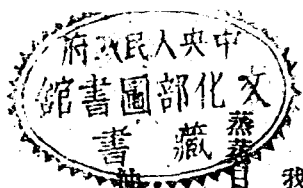 中央人民政府
文化部圖書館
藏書
蒸蒸日
我